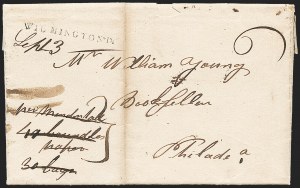 WILMINGTON
Sept 3
Mr William Young
Bookseller
Philada
paper
30 bags